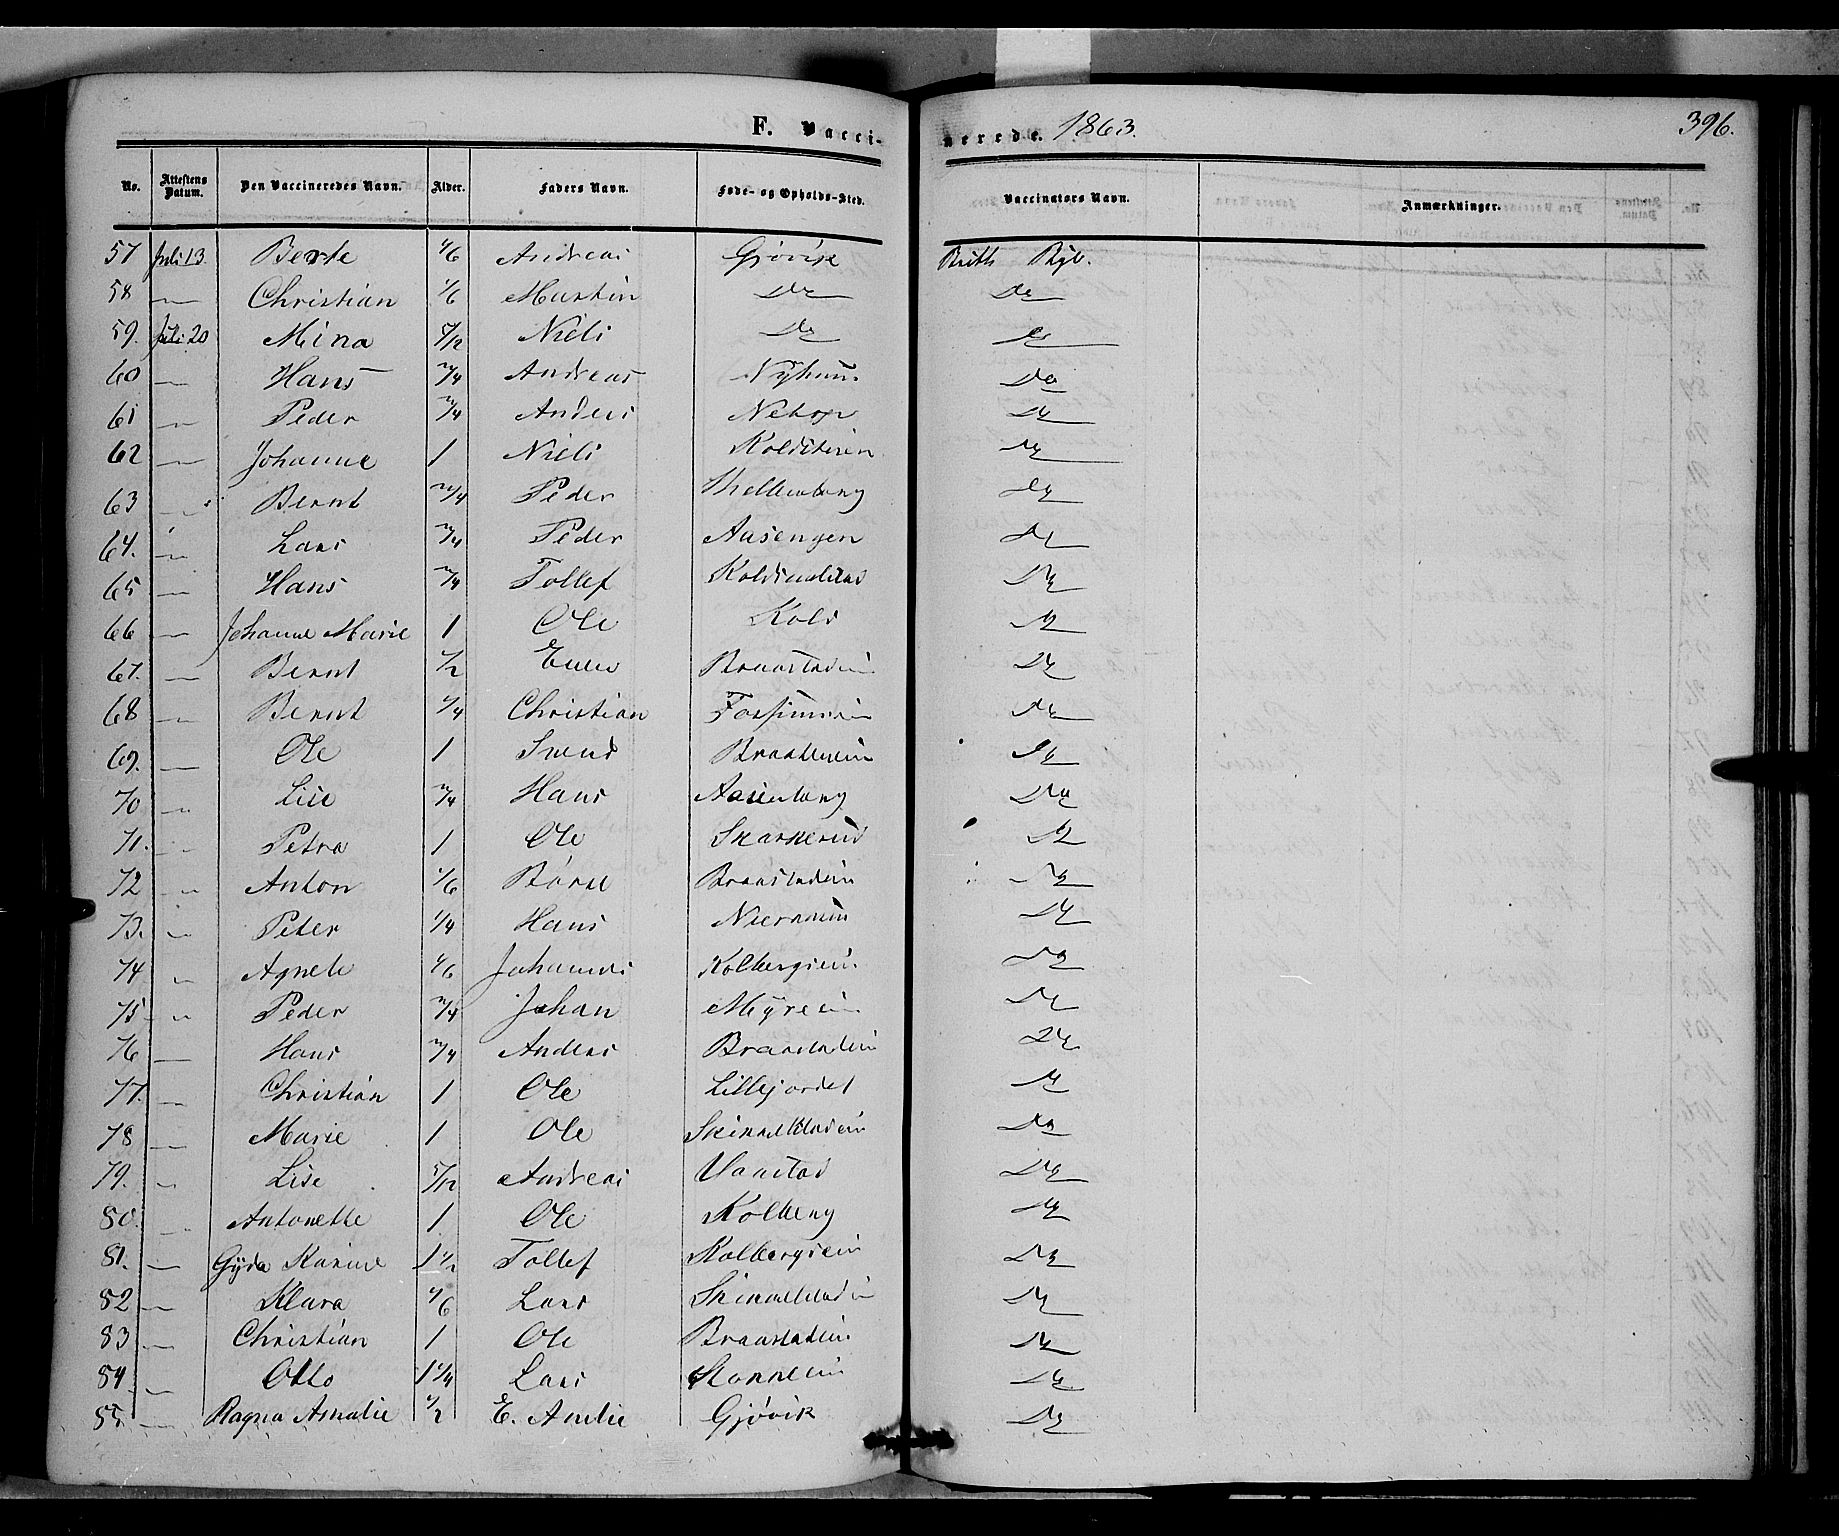 F. Vacci- nerede. 1863. 396.
No. Attestens Datum. Den Vaccineredes Navn. Alder. Faders Navn. Føde- og Opholds-Sted. Vaccinators Navn. Anmærkninger.
57 Juli 13 Berte 1/6 Andreas Gjøvik
58 — Christian 1/6 Martin Do Do
59. Juli 20 Mina 5/12 Niels Do Do
60 — Hans 3/4 Andreas Nyhuus Do
61 — Peder 3/4 Anders Do
62 — Johanne 1 Niels Do
63 — Bernt 3/4 Peder Do
64. — Lars 3/4 Peder Aasengen Do
65 — Hans 3/4 Tollef Do
66 — Johanne Marie 1 Ole Do
67. — Bernt 1/2 Even Braastadein Do
68 — Bernt 1/4 Christian Do
69. — Ole 1 Svend Do
70 — Lise 3/4 Hans Do
71. — Petra 1 Ole Skarkerud Do
72 — Anton 1/6 Børre Braastadein Do
73. — Peter 1/4 Hans Do
74 — Agnete 1/6 Johannes Kolbergsein Do
75 — Peder 3/4 Johan Myrein Do
76 — Hans 3/4 Anders Braastadein Do
77. — Christian 1 Ole Lillejordet Do
78 — Marie 1 Ole Do
79. — Lise 5/12 Andreas Do
80. — Antonette 1 Ole Kolberg Do
81. — Gyda Karine 1 1/2 Tollef Kolbergsein Do
82 — Klara 1/6 Lars Do
83 — Christian 1 Ole Braastadein Do
84 — Otto 1 1/4 Lars Do
85. — Ragna Amalie 1/2 E. Gjøvik Do